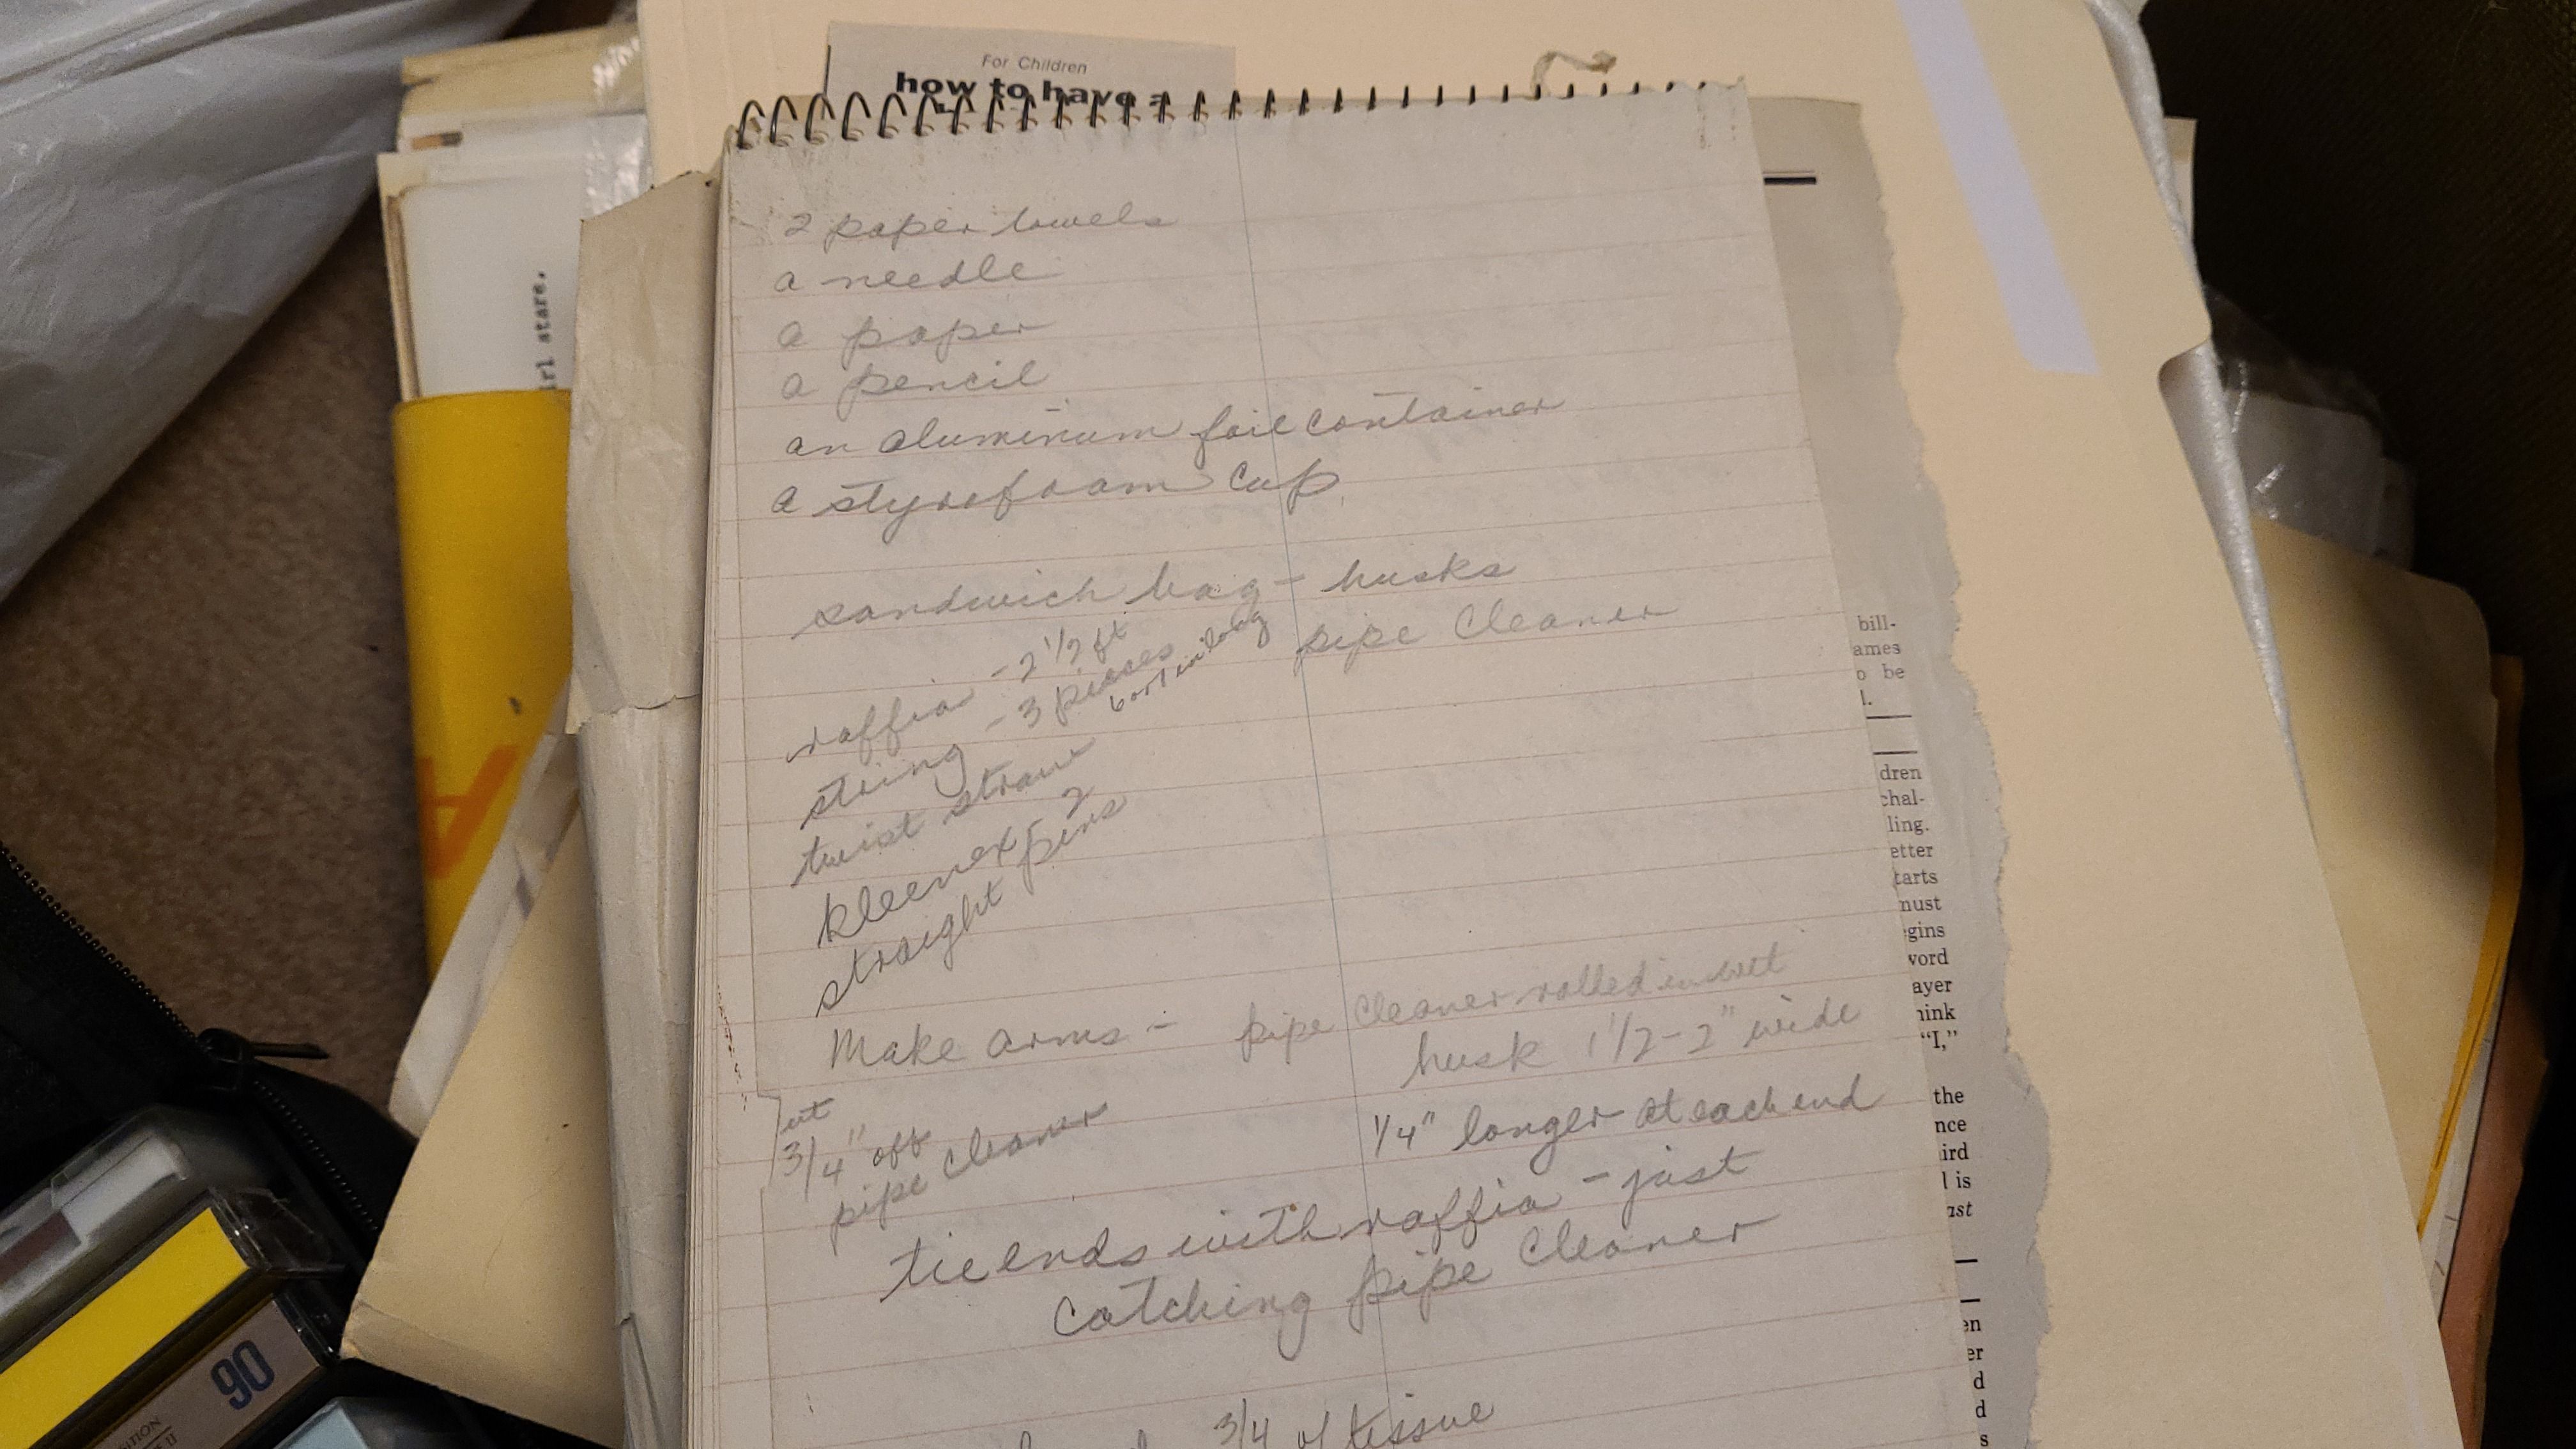 For Children
how to have a
2 paper towels
a needle
a paper
a pencil
an aluminum foil container
a styrofoam cup
sandwich bag - husks
pipe cleaner
raffia - 2 1/2 ft
string - 3 pieces
6 or 7 in long
twist straw
kleenex 2
straight pins
Make arms - pipe cleaner rolled in wet
husk 1 1/2 - 2" wide
1/4" longer at each end
cut
3/4" off
pipe cleaner
tie ends with raffia - just
catching pipe cleaner
3/4 of tissue
irl stare.
bill-
ames
o be
l.
dren
chal-
ling.
etter
tarts
nust
gins
vord
ayer
hink
"I,"
the
nce
ird
l is
ast
en
er
d
d
s
90